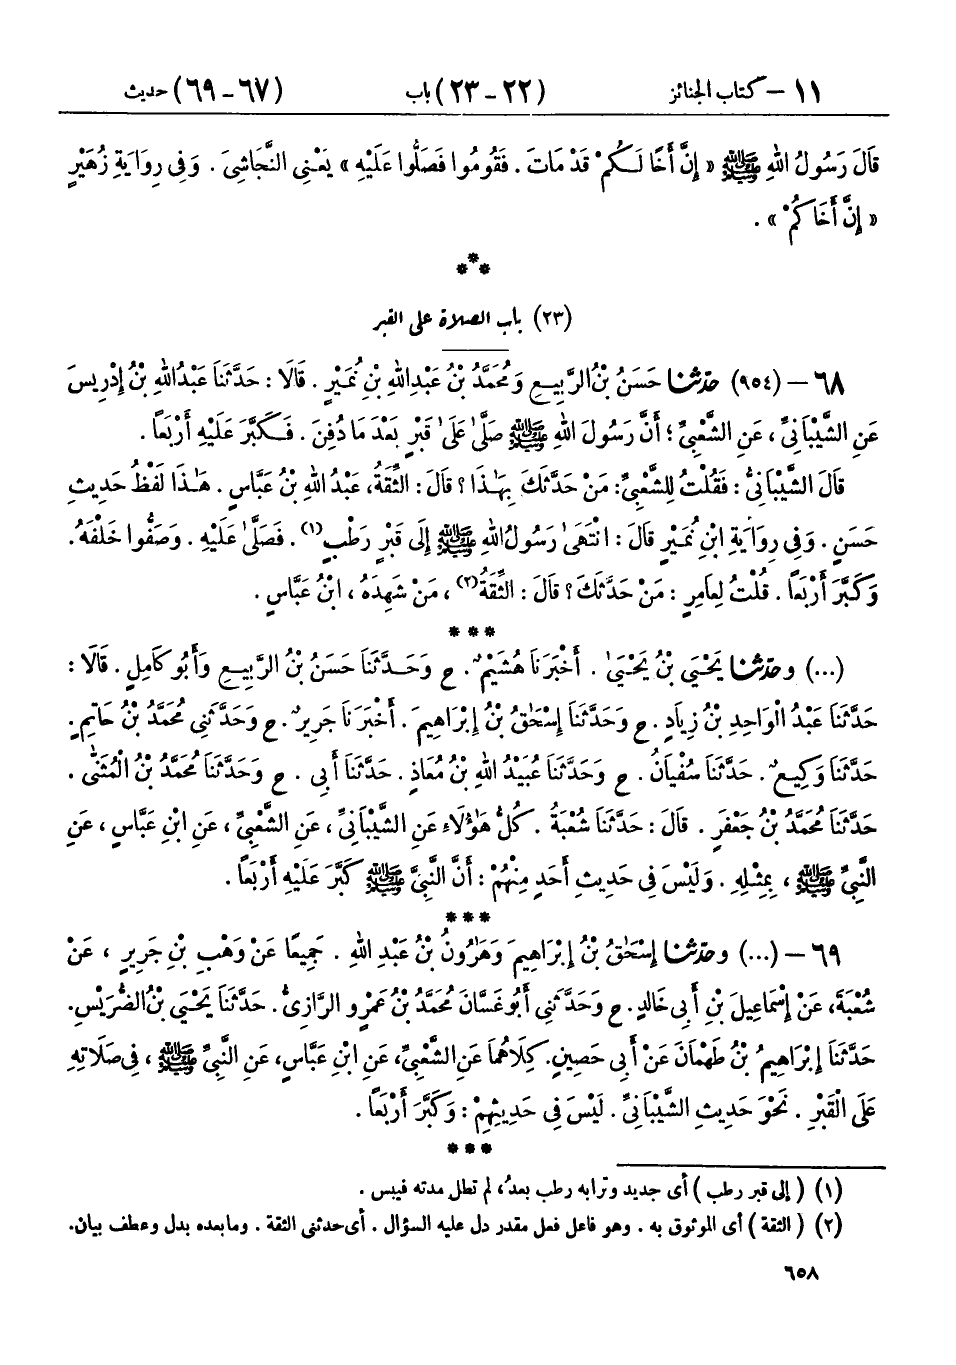 ١١ – كتاب الجنائز (٢٢ – ٢٣) باب (٦٧ – ٦٩) حديث
قَالَ رَسُولُ اللهِ ﷺ « إِنَّ أَخًا لَكُمْ قَدْ مَاتَ . فَقُومُوا فَصَلُّوا عَلَيْهِ » يَعْنِي النَّجَاشِيَ . وَفِي رِوَايَةِ زُهَيْرٍ
« إِنَّ أَخَاكُمْ » .
***
(٢٣) باب الصلاة على القبر
٦٨ – (٩٥٤) حدّثنا حَسَنُ بْنُ الرَّبِيعِ وَمُحَمَّدُ بْنُ عَبْدِ اللهِ بْنِ نُمَيْرٍ . قَالَا : حَدَّثَنَا عَبْدُ اللهِ بْنُ إِدْرِيسَ
عَنِ الشَّيْبَانِيِّ ، عَنِ الشَّعْبِيِّ ؛ أَنَّ رَسُولَ اللهِ ﷺ صَلَّىٰ عَلَىٰ قَبْرٍ بَعْدَ مَا دُفِنَ . فَكَبَّرَ عَلَيْهِ أَرْبَعًا .
قَالَ الشَّيْبَانِيُّ : فَقُلْتُ لِلشَّعْبِيِّ: مَنْ حَدَّثَكَ بِهَٰذَا ؟ قَالَ : الثِّقَةُ، عَبْدُ اللهِ بْنُ عَبَّاسٍ . هَٰذَا لَفْظُ حَدِيثِ
حَسَنٍ . وَفِي رِوَايَةِ ابْنِ نُمَيْرٍ قَالَ : انْتَهَىٰ رَسُولُ اللهِ ﷺ إِلَى قَبْرٍ رَطْبٍ (١) . فَصَلَّىٰ عَلَيْهِ . وَصَفُّوا خَلْفَهُ .
وَكَبَّرَ أَرْبَعًا . قُلْتُ لِعَامِرٍ : مَنْ حَدَّثَكَ ؟ قَالَ : الثِّقَةُ (٢) ، مَنْ شَهِدَهُ ، ابْنُ عَبَّاسٍ .
***
(...) وحدّثنا يَحْيَىٰ بْنُ يَحْيَىٰ . أَخْبَرَنَا هُشَيْمٌ . ح وَحَدَّثَنَا حَسَنُ بْنُ الرَّبِيعِ وَأَبُو كَامِلٍ . قَالَا :
حَدَّثَنَا عَبْدُ الْوَاحِدِ بْنُ زِيَادٍ . ح وَحَدَّثَنَا إِسْحَٰقُ بْنُ إِبْرَاهِيمَ . أَخْبَرَنَا جَرِيرٌ . ح وَحَدَّثَنِي مُحَمَّدُ بْنُ حَاتِمٍ .
حَدَّثَنَا وَكِيعٌ . حَدَّثَنَا سُفْيَانُ . ح وَحَدَّثَنَا عُبَيْدُ اللهِ بْنُ مُعَاذٍ . حَدَّثَنَا أَبِي . ح وَحَدَّثَنَا مُحَمَّدُ بْنُ الْمُثَنَّىٰ .
حَدَّثَنَا مُحَمَّدُ بْنُ جَعْفَرٍ . قَالَ : حَدَّثَنَا شُعْبَةُ . كُلُّ هَٰؤُلَاءِ عَنِ الشَّيْبَانِيِّ ، عَنِ الشَّعْبِيِّ ، عَنِ ابْنِ عَبَّاسٍ ، عَنِ
النَّبِيِّ ﷺ ، بِمِثْلِهِ . وَلَيْسَ فِي حَدِيثِ أَحَدٍ مِنْهُمْ : أَنَّ النَّبِيَّ ﷺ كَبَّرَ عَلَيْهِ أَرْبَعًا .
***
٦٩ – (...) وحدّثنا إِسْحَٰقُ بْنُ إِبْرَاهِيمَ وَهَٰرُونُ بْنُ عَبْدِ اللهِ . جَمِيعًا عَنْ وَهْبِ بْنِ جَرِيرٍ ، عَنْ
شُعْبَةَ، عَنْ إِسْمَاعِيلَ بْنِ أَبِي خَالِدٍ . ح وَحَدَّثَنِي أَبُو غَسَّانَ مُحَمَّدُ بْنُ عَمْرٍو الرَّازِيُّ . حَدَّثَنَا يَحْيَىٰ بْنُ الضُّرَيْسِ.
حَدَّثَنَا إِبْرَاهِيمُ بْنُ طَهْمَانَ عَنْ أَبِي حَصِينٍ. كِلَاهُمَا عَنِ الشَّعْبِيِّ، عَنِ ابْنِ عَبَّاسٍ، عَنِ النَّبِيِّ ﷺ ، فِي صَلَاتِهِ
عَلَى الْقَبْرِ . نَحْوَ حَدِيثِ الشَّيْبَانِيِّ . لَيْسَ فِي حَدِيثِهِمْ : وَكَبَّرَ أَرْبَعًا .
***
(١) ( إلى قبر رطب ) أى جديد وترابه رطب بعدُ، لم تطل مدته فيبس .
(٢) ( الثقة ) أى الموثوق به . وهو فاعل فعل مقدر دل عليه السؤال . أى حدثنى الثقة . وما بعده بدل وعطف بيان.
٦٥٨